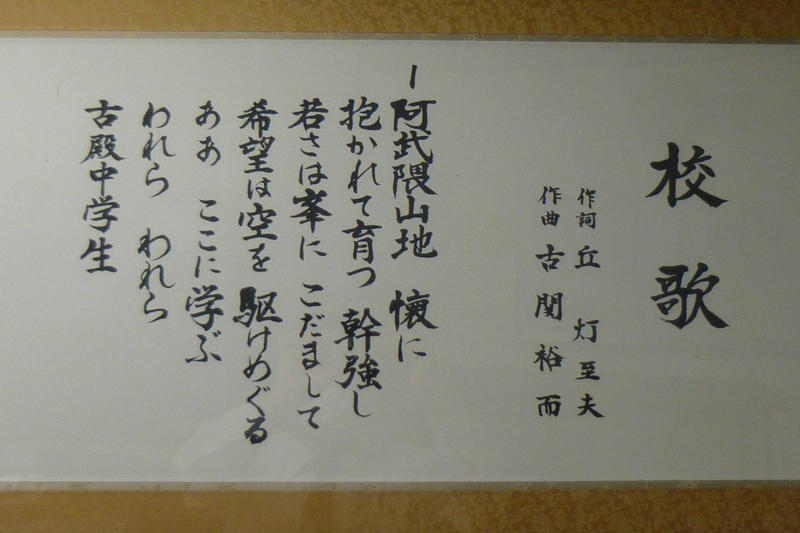 校歌
作詞 丘 灯至夫
作曲 古関裕而
一阿武隈山地 懐に
抱かれて育つ 幹強し
若さは峯に こだまして
希望は空を 駆けめぐる
ああ ここに学ぶ
われら われら
古殿中学生